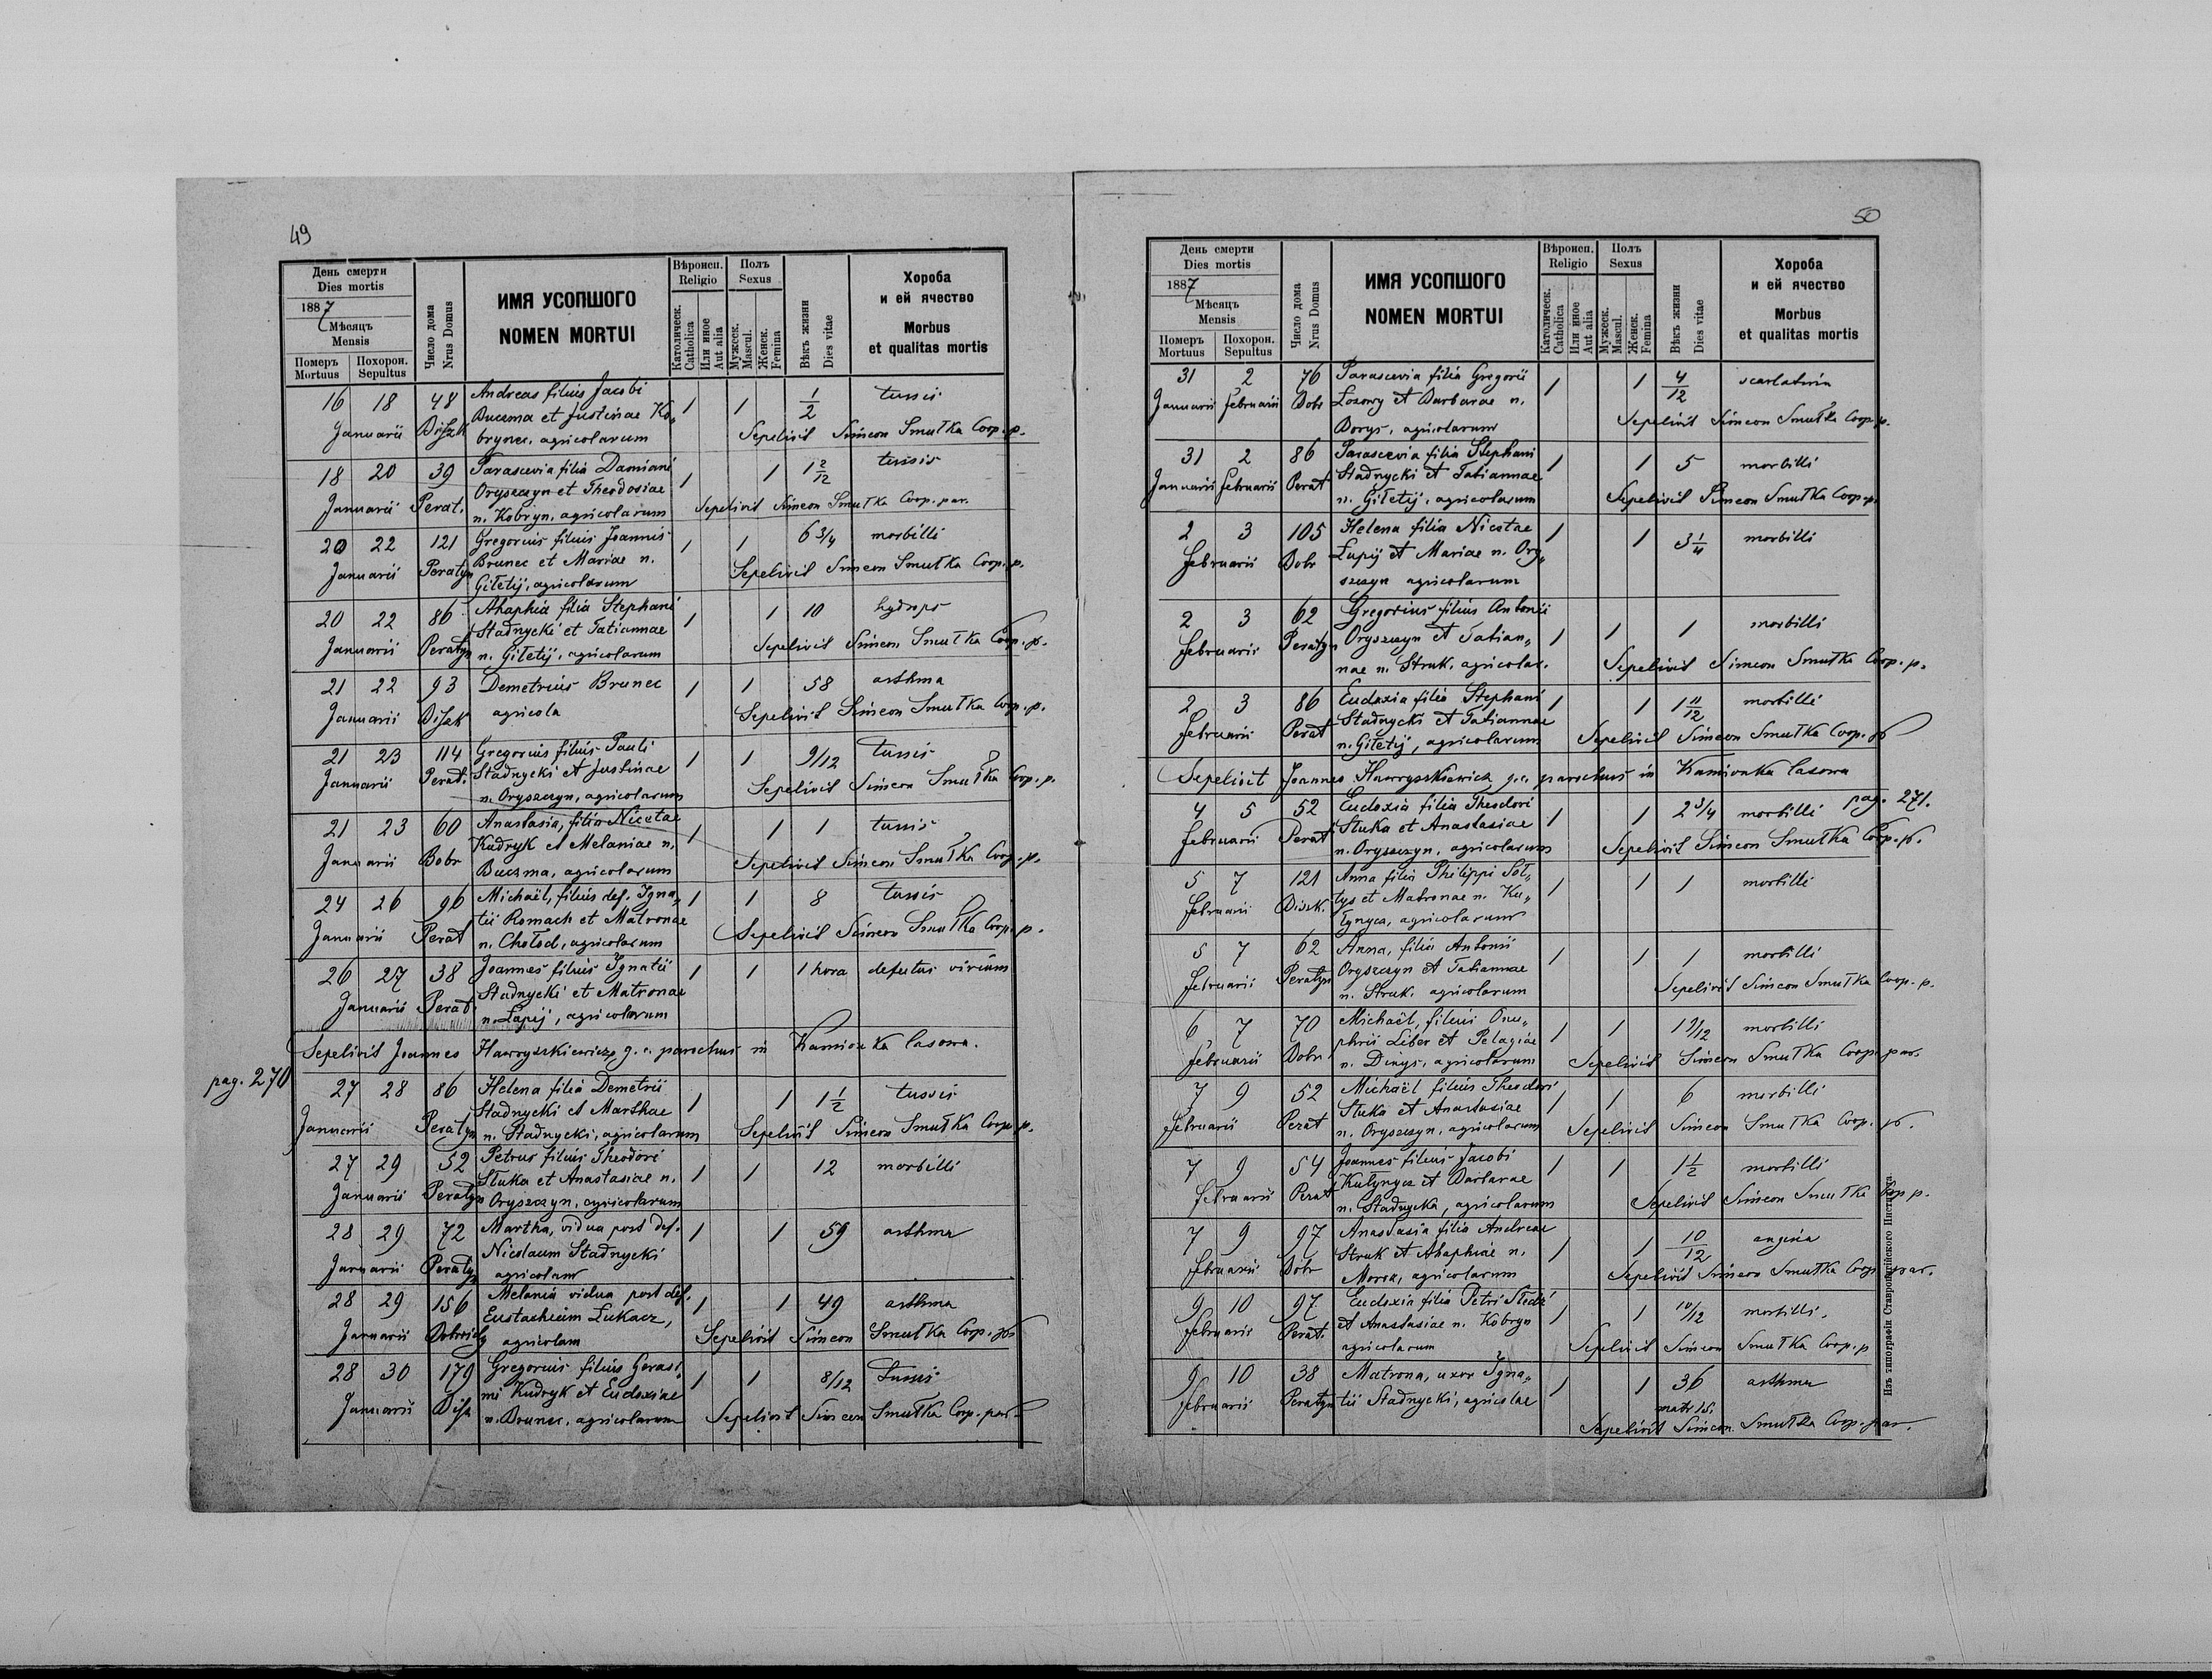 49
День смерти
Dies mortis
1887
Мѣсяцъ
Mensis
Померъ
Mortuus
Похорон.
Sepultus
Число дома
Nrus Domus
ИМЯ УСОПШОГО
NOMEN MORTUI
Вѣроисп.
Religio
Католическ.
Catholica
Или иное
Aut alia
Полъ
Sexus
Мужеск.
Mascul.
Женск.
Femina
Вѣкъ жизни
Dies vitae
Хороба
и ей ячество
Morbus
et qualitas mortis
16 18 48 Andreas filius Jacobi 1 1 1/2 tussis
Januarii Duczma et Justinae Ko„
brynec, agricolarum Sepelivit Simeon Smutka Coop. p.
18 20 39 Parascevia filia Damiani 1 1 1 2/12 tussis
Januarii Perat. Oryszczyn et Theodosiae
n. Kobryn, agricolarum Sepelivit Simeon Smutka Coop. par.
20 22 121 Gregorius filius Joannis 1 1 6 3/4 morbilli
Januarii Peratyn Brunec et Mariae n.
Giletij, agricolarum Sepelivit Simeon Smutka Coop. p.
20 22 86 Ahaphia filia Stephani 1 1 10 hydrops
Januarii Peratyn Stadnycki et Tatiannae
n. Giletij, agricolarum Sepelivit Simeon Smutka Coop. p.
21 22 93 Demetrius Brunec 1 1 58 asthma
Januarii agricola Sepelivit Simeon Smutka Coop. p.
21 23 114 Gregorius filius Pauli 1 1 9/12 tussis
Januarii Perat. Stadnycki et Justinae
n. Oryszczyn, agricolarum Sepelivit Simeon Smutka Coop. p.
21 23 60 Anastasia, filia Nicetae 1 1 1 tussis
Januarii Dobr Kudryk et Melaniae n.
Duczma, agricolarum Sepelivit Simeon Smutka Coop. p.
24 26 96 Michaël, filius def. Igna„ 1 1 8 tussis
Januarii Perat tii Romach et Matronae
n. Chołod, agricolarum Sepelivit Simeon Smutka Coop. p.
26 27 38 Joannes filius Ignatii 1 1 1 hora defectus virium
Januarii Perat Stadnycki et Matronae
n. Łapij, agricolarum
Sepelivit Joannes Hawryszkiewicz g. c. parochus in Kamionka lasowa.
pag. 270
27 28 86 Helena filia Demetrii 1 1 1 1/2 tussis
Januarii Peratyn Stadnycki et Marthae
n. Stadnycki, agricolarum Sepelivit Simeon Smutka Coop. p.
27 29 52 Petrus filius Theodori 1 1 12 morbilli
Januarii Peratyn Stuka et Anastasiae n.
Oryszczyn, agricolarum
28 29 72 Martha, vidua post def. 1 1 59 asthma
Januarii Peratyn Nicolaum Stadnycki
agricolam
28 29 156 Melania vidua post def. 1 1 49 asthma
Januarii Eustachium Łukacz,
agricolam Sepelivit Simeon Smutka Coop. par
28 30 179 Gregorius filius Gerasi„ 1 1 8/12 Tussis
Januarii mi Kudryk et Eudoxiae
n. Brunec, agricolarum Sepelivit Simeon Smutka Coop. par.
50
День смерти
Dies mortis
1887
Мѣсяцъ
Mensis
Померъ
Mortuus
Похорон.
Sepultus
Число дома
Nrus Domus
ИМЯ УСОПШОГО
NOMEN MORTUI
Вѣроисп.
Religio
Католическ.
Catholica
Или иное
Aut alia
Полъ
Sexus
Мужеск.
Mascul.
Женск.
Femina
Вѣкъ жизни
Dies vitae
Хороба
и ей ячество
Morbus
et qualitas mortis
31 2 76 Parascevia filia Gregorii 1 1 4/12 scarlatina
Januarii Februarii Dobr Łozowy et Barbarae n.
Borys, agricolarum Sepelivit Simeon Smutka Coop. p.
31 2 86 Parascevia filia Stephani 1 1 5 morbilli
Januarii Februarii Perat Stadnycki et Tatiannae
n. Giletij, agricolarum Sepelivit Simeon Smutka Coop. p.
2 3 105 Helena filia Nicetae 1 1 3 1/4 morbilli
Februarii Dobr Łapij et Mariae n. Ory„
szczyn agricolarum
2 3 62 Gregorius filius Antonii
Februarii Peratyn Oryszczyn et Tatian„ 1 1 1 morbilli
nae n. Struk, agricolar. Sepelivit Simeon Smutka Coop. p.
2 3 86 Eudoxia filia Stephani 1 1 1 11/12 morbilli
Februarii Perat Stadnycki et Tatiannae
n. Giletij, agricolarum Sepelivit Simeon Smutka Coop. p
Sepelivit Joannes Hawryszkiewicz g. c. parochus in Kamionka lasowa
pag. 271.
4 5 52 Eudoxia filia Theodori 1 1 2 3/4 morbilli
Februarii Perat Stuka et Anastasiae
n. Oryszczyn, agricolarum Sepelivit Simeon Smutka Coop. p.
5 7 121 Anna filia Philippi Soł„ 1 1 1 morbilli
Februarii tys et Matronae n. Ku„
łynycz, agricolarum
5 7 62 Anna, filia Antonii 1 1 1 morbilli
Februarii Peratyn Oryszczyn et Tatiannae
n. Struk, agricolarum Sepelivit Simeon Smutka Coop. p.
6 7 70 Michaël, filius Onu„ 1 1 1 9/12 morbilli
Februarii Dobr phrii Liber et Pelagiae
n. Dinys, agricolarum Sepelivit Simeon Smutka Coop. par.
7 9 52 Michaël filius Theodori 1 1 6 morbilli
Februarii Perat Stuka et Anastasiae
n. Oryszczyn, agricolarum Sepelivit Simeon Smutka Coop. p.
7 9 54 Joannes filius Jacobi 1 1 1 1/2 morbilli
Februarii Perat Kułynycz et Barbarae
n. Stadnycka, agricolarum Sepelivit Simeon Smutka Coop p.
7 9 97 Anastasia filia Andreae 1 1 10/12 angina
Februarii Dobr Struk et Ahaphiae n.
Moroz, agricolarum Sepelivit Simeon Smutka Coop. par.
9 10 97 Eudoxia filia Petri 1 1 10/12 morbilli.
Februarii Perat. et Anastasiae n. Kobryn
agricolarum Sepelivit Simeon Smutka Coop. p
9 10 38 Matrona, uxor Igna„ 1 1 36 asthma
Februarii Peratyn tii Stadnycki, agricolae
Sepelivit Simeon Smutka Coop. par.
Изъ типографіи Ставропигійского Института